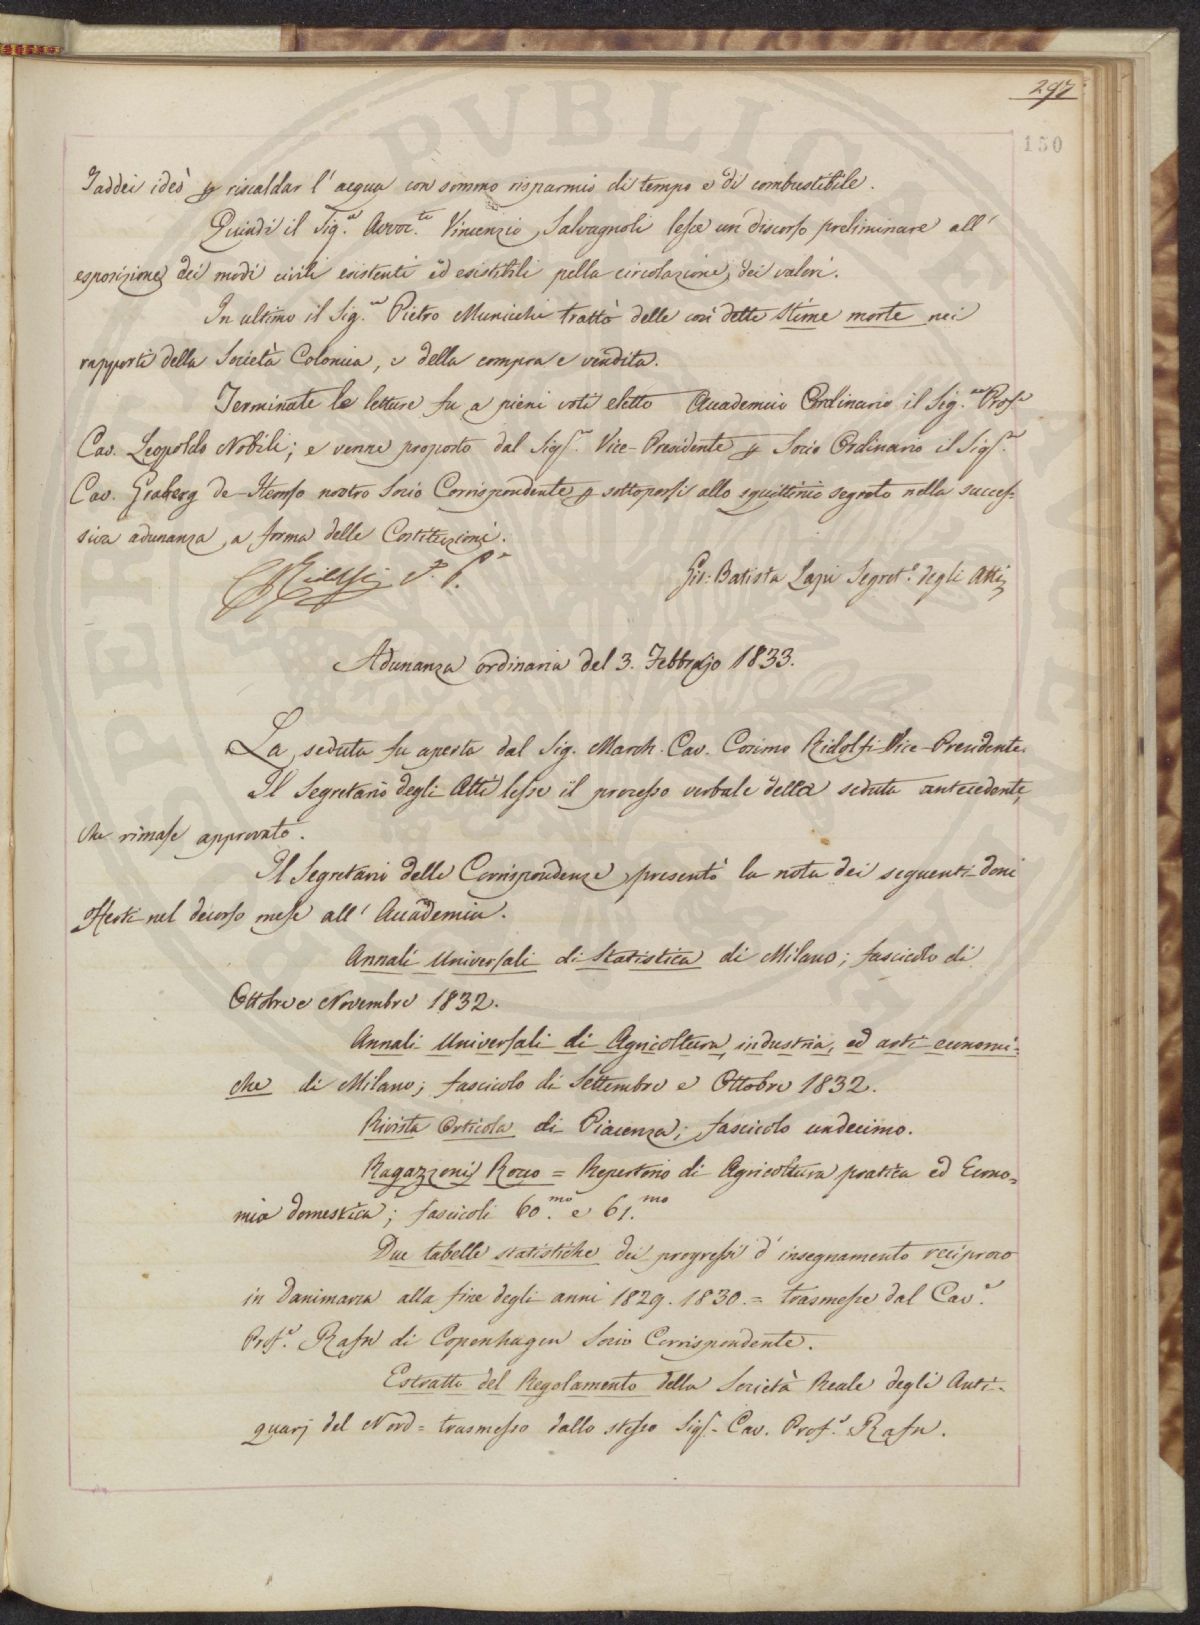 297
150
Taddei ideò p riscaldar l'acqua con sommo risparmio di tempo e di combustibile.
Quindi il Sig.r Avvoc.to Vincenzio Salvagnoli lesse un discorso preliminare all'
esposizione dei modi civili esistenti ed esistibili pella circolazione dei valori.
In ultimo il Sig.r Pietro Municchi trattò delle così dette stime morte nei
rapporti della Società Colonica, e della compra e vendita.
Terminate le letture fu a pieni voti eletto Accademico Ordinario il Sig.r Prof.r
Cav. Leopoldo Nobili; e venne proposto dal Sig.r Vice-Presidente p Socio Ordinario il Sig.r
Cav. Graberg de Hemso nostro Socio Corrispondente p sottoporsi allo squittinio segreto nella succes=
siva adunanza, a forma delle Costituzioni.
C. Ridolfi V. P.e
Gio: Batista Lapi Segret.o degli Atti
Adunanza ordinaria del 3. Febbrajo 1833.
La seduta fu aperta dal Sig. March. Cav. Cosimo Ridolfi Vice-Presidente.
Il Segretario degli Atti lesse il processo verbale della seduta antecedente,
che rimase approvato.
Il Segretario delle Corrispondenze presentò la nota dei seguenti doni
offerti nel decorso mese all'Accademia.
Annali Universali di Statistica di Milano; fascicolo di
Ottobre e Novembre 1832.
Annali Universali di Agricoltura, industria, ed arti economi=
che di Milano; fascicolo di Settembre e Ottobre 1832.
Rivista Orticola di Piacenza; fascicolo undecimo.
Ragazzoni Rocco = Repertorio di Agricoltura pratica ed Econo=
mia domestica; fascicoli 60.mo e 61.mo
Due tabelle statistiche dei progressi d'insegnamento reciproco
in Danimarca alla fine degli anni 1829. 1830. = trasmesse dal Cav.r
Prof.r Rafn di Copenhagen Socio Corrispondente.
Estratto del Regolamento della Società Reale degli Anti=
quarj del Nord = trasmesso dallo stesso Sig.r Cav. Prof.r Rafn.